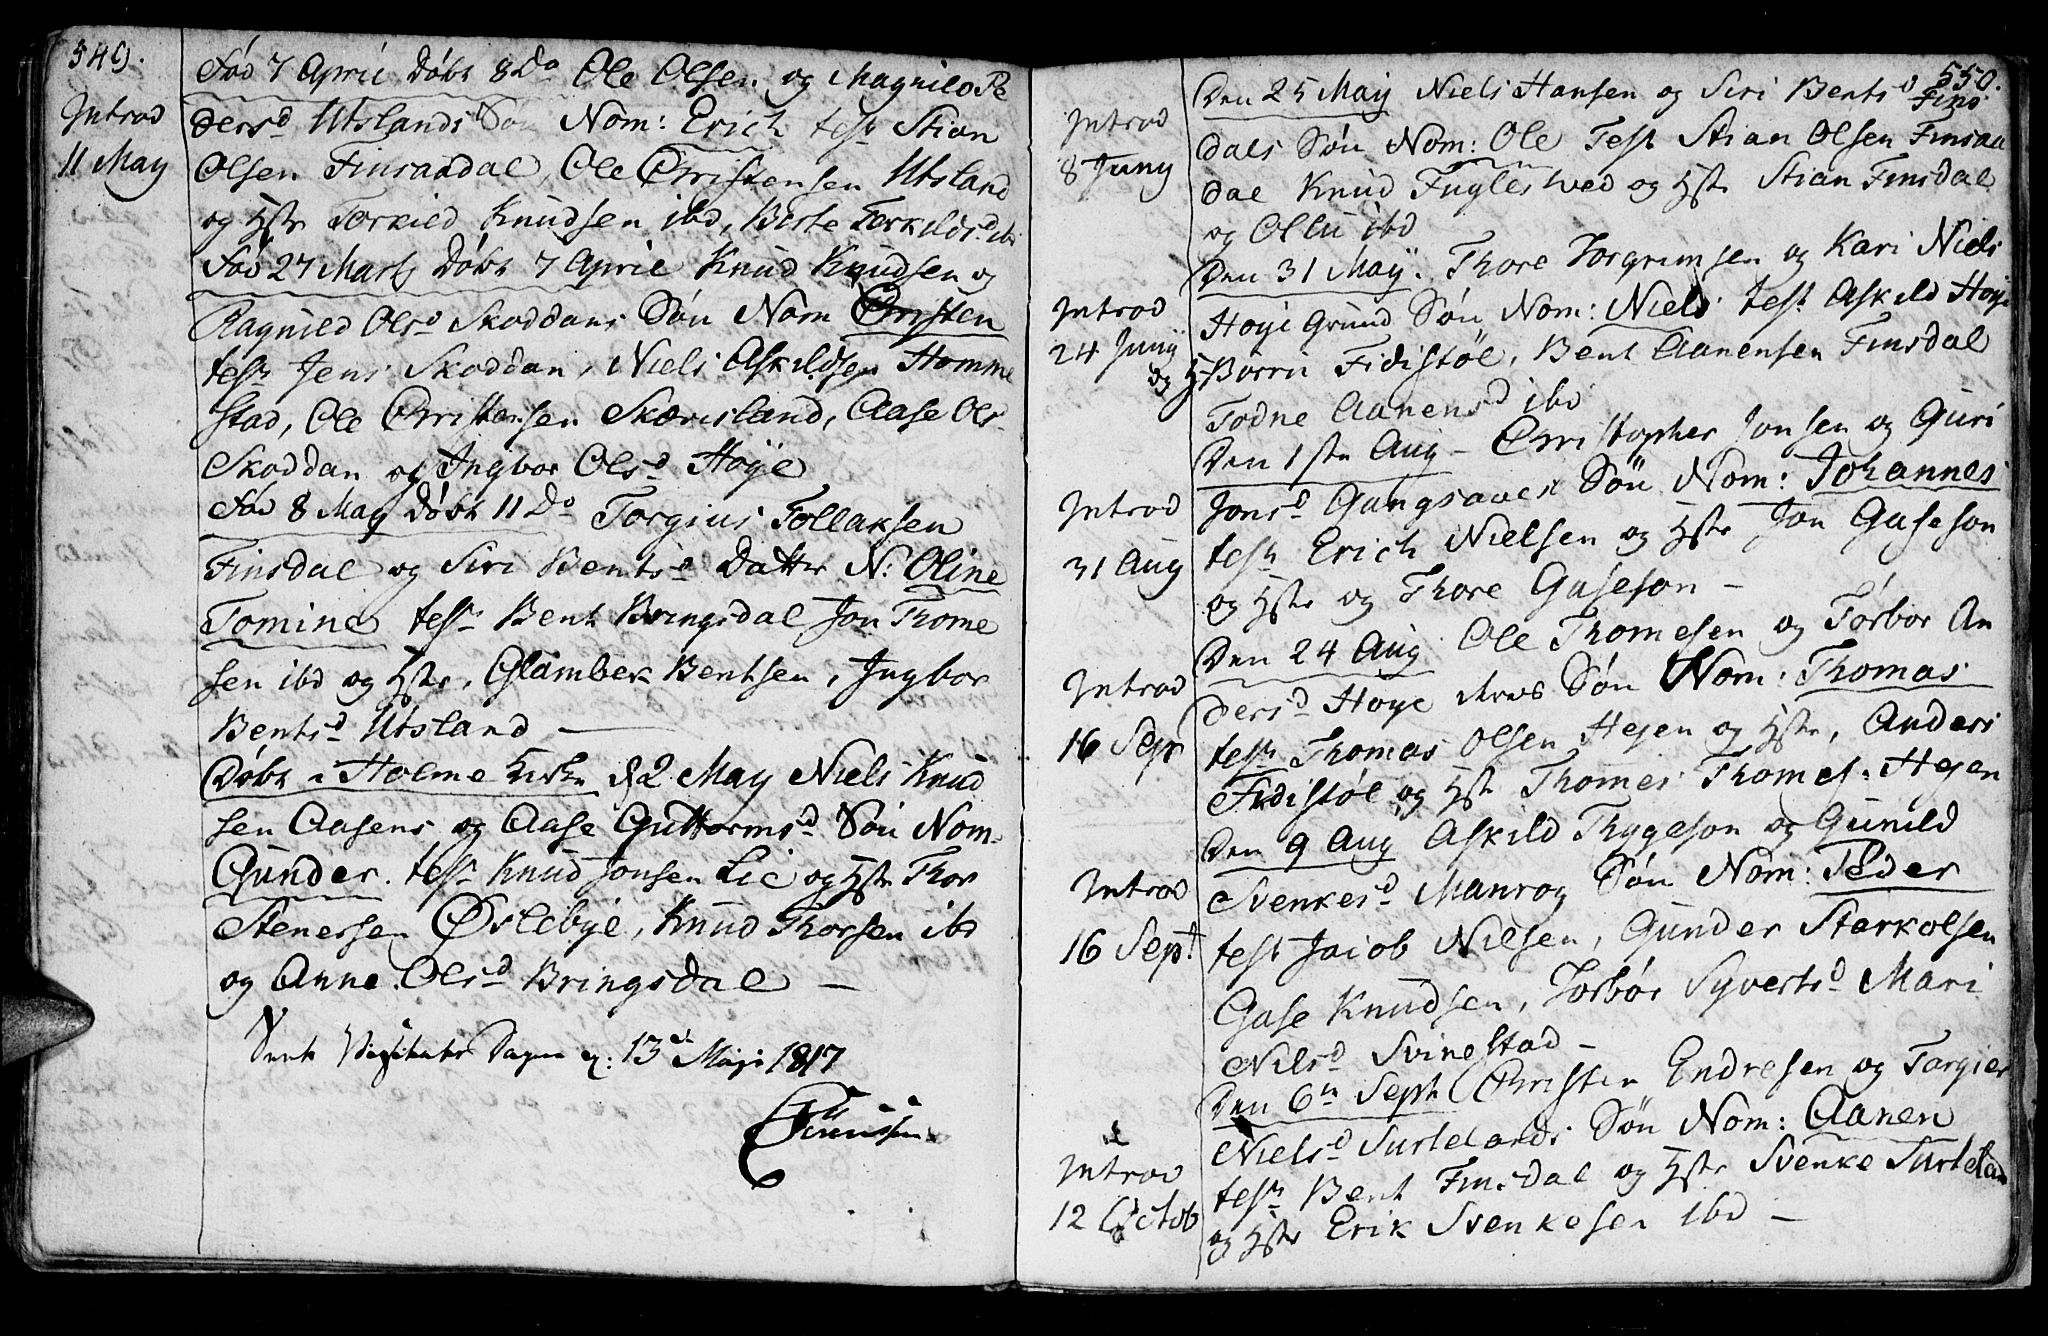 549.
Introd
11 May
Fød 7 April Døbt 8 Do Ole Olsen og Magnild Pe
dersd Utslands Søn Nom: Erich test Stian
Olsen Finsaadal, Ole Christensen Utsland
og Hstr Terkild Knudsen ibd, Berte Terkildsd ibd
Fød 27 Marts Døbt 7 April Knud Knudsen og
Ragnild Olsd Skoddans Søn Nom Christen
test Jens Skoddan, Niels Askildsen Homme
stad, Ole Christensen Skærisland, Aase Ols
Skoddan og Ingbor Olsd Høye
Fød 8 May Døbt 11 Do Torgius Tollaksen
Finsdal og Siri Bentsd Datter N: Oline
Tomine test Bent Bringsdal Jon Thome
sen ibd og Hstr, Glamber Bentsen, Ingbor
Bentsd Utsland —
Døbt i Holme Kirke d 2 May Niels Knud
sen Aasens og Aase Guttormsd Søn Nom.
Gunder. test Knud Jonsen Lie og Hstr Thor
Stenersen Øslebye, Knud Thorsen ibd
og Anne Olsd Bringsdal —
Visitats Dagen d: 13de Maji 1817
550.
Introd
8 Juny
Den 25 May Niels Hansen og Siri Bentsd Fins
dals Søn Nom: Ole Test Stian Olsen Finsaa
dal Knud Fuglestved og Hstr Stian Finsdal
og Ollu ibd
Introd
24 Juny
Den 31 May. Thore Torgrimsen og Kari Niels
Høye Grund Søn Nom: Niels test Askild Høye
og H Borru Fidistøl, Bent Aanensen Finsdal
Todne Aanensd ibd
Introd
31 Aug
Den 1ste Aug – Christopher Jonsen og Guri
Jonsd Gangsaaes Søn Nom: Johannes
test Erich Nielsen og Hstr Jon Gaseson
og Hstr og Thore Gaseson –
Introd
16 Sept
Den 24 Aug Ole Thomesen og Torbor An
dersd Høye Søn Nom: Thomas
test Thomas Olsen Hejen og Hstr, Anders
Fidistøl og Hstr Thomes Thomes: Hejen
Introd
16 Sept
Den 9 Aug Askild Thygeson og Gunild
Svenkesd Manrog Søn Nom: Peder
test Jacob Nilsen, Gunder Sterkolsen
Gase Knudsen, Torbør Syvertsd Mari
Nilsd Svinestad –
Introd
12 Octob
Den 6te Sept Christen Endresen og Torgier
Nielsd Surtelands Søn Nom: Aanen
test Bent Finsdal og Hstr Svenke Surtelan
og Hstr Erik Svenkesen ibd –